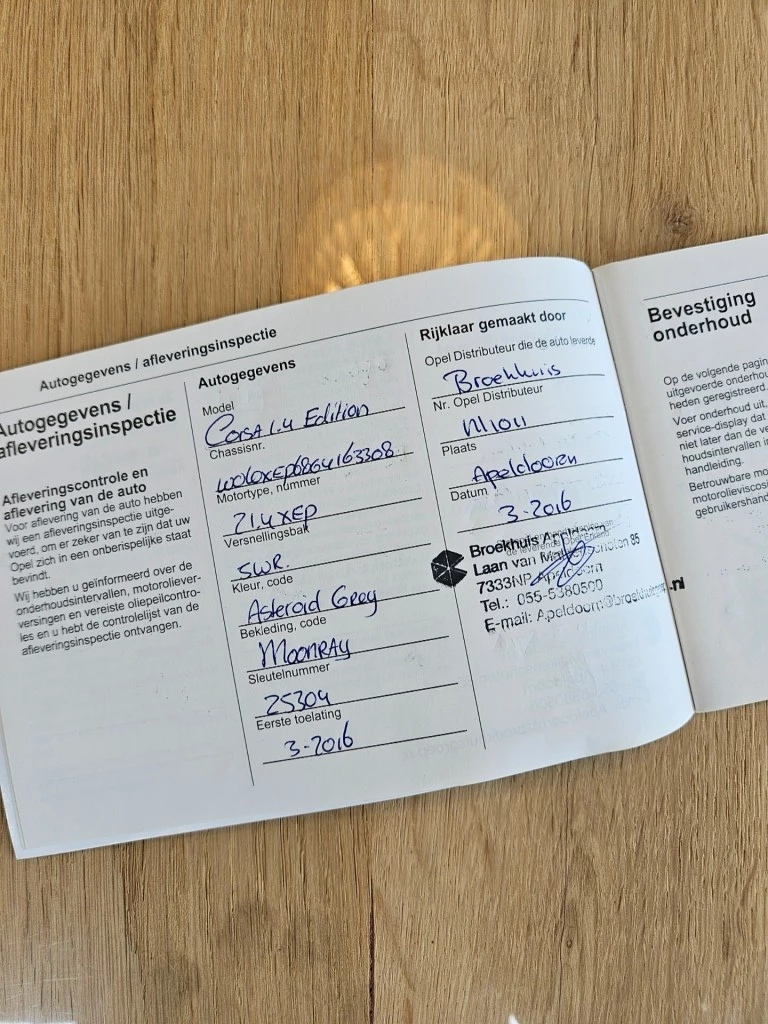 Autogegevens / afleveringsinspectie
Autogegevens /
afleveringsinspectie
Afleveringscontrole en
aflevering van de auto
Voor aflevering van de auto hebben
wij een afleveringsinspectie uitge-
voerd, om er zeker van te zijn dat uw
Opel zich in een onberispelijke staat
bevindt.
Wij hebben u geïnformeerd over de
onderhoudsintervallen, motoroliever-
versingen en vereiste oliepeilcontro-
les en u hebt de controlelijst van de
afleveringsinspectie ontvangen.
Autogegevens
Model
Corsa 1.4 Edition
Chassisnr.
W0L0XEP68G4163308
Motortype, nummer
Z1.4XEP
Versnellingsbak
5WR.
Kleur, code
Asteroid Grey
Bekleding, code
MoonRAy
Sleutelnummer
25304
Eerste toelating
3-2016
Rijklaar gemaakt door
Opel Distributeur die de auto leverde
Broekhuis
Nr. Opel Distributeur
N1011
Plaats
Apeldoorn
Datum
3-2016
Broekhuis Apeldoorn
Laan van 85
7333NP Apeldoorn
Tel.: 055-5380500
E-mail: .nl
Bevestiging
onderhoud
Op de volgende pagin
uitgevoerde onderhou
heden geregistreerd.
Voer onderhoud uit,
service-display dat
niet later dan de ve
houdsintervallen i
handleiding.
Betrouwbare mo
motorolieviscosi
gebruikershand